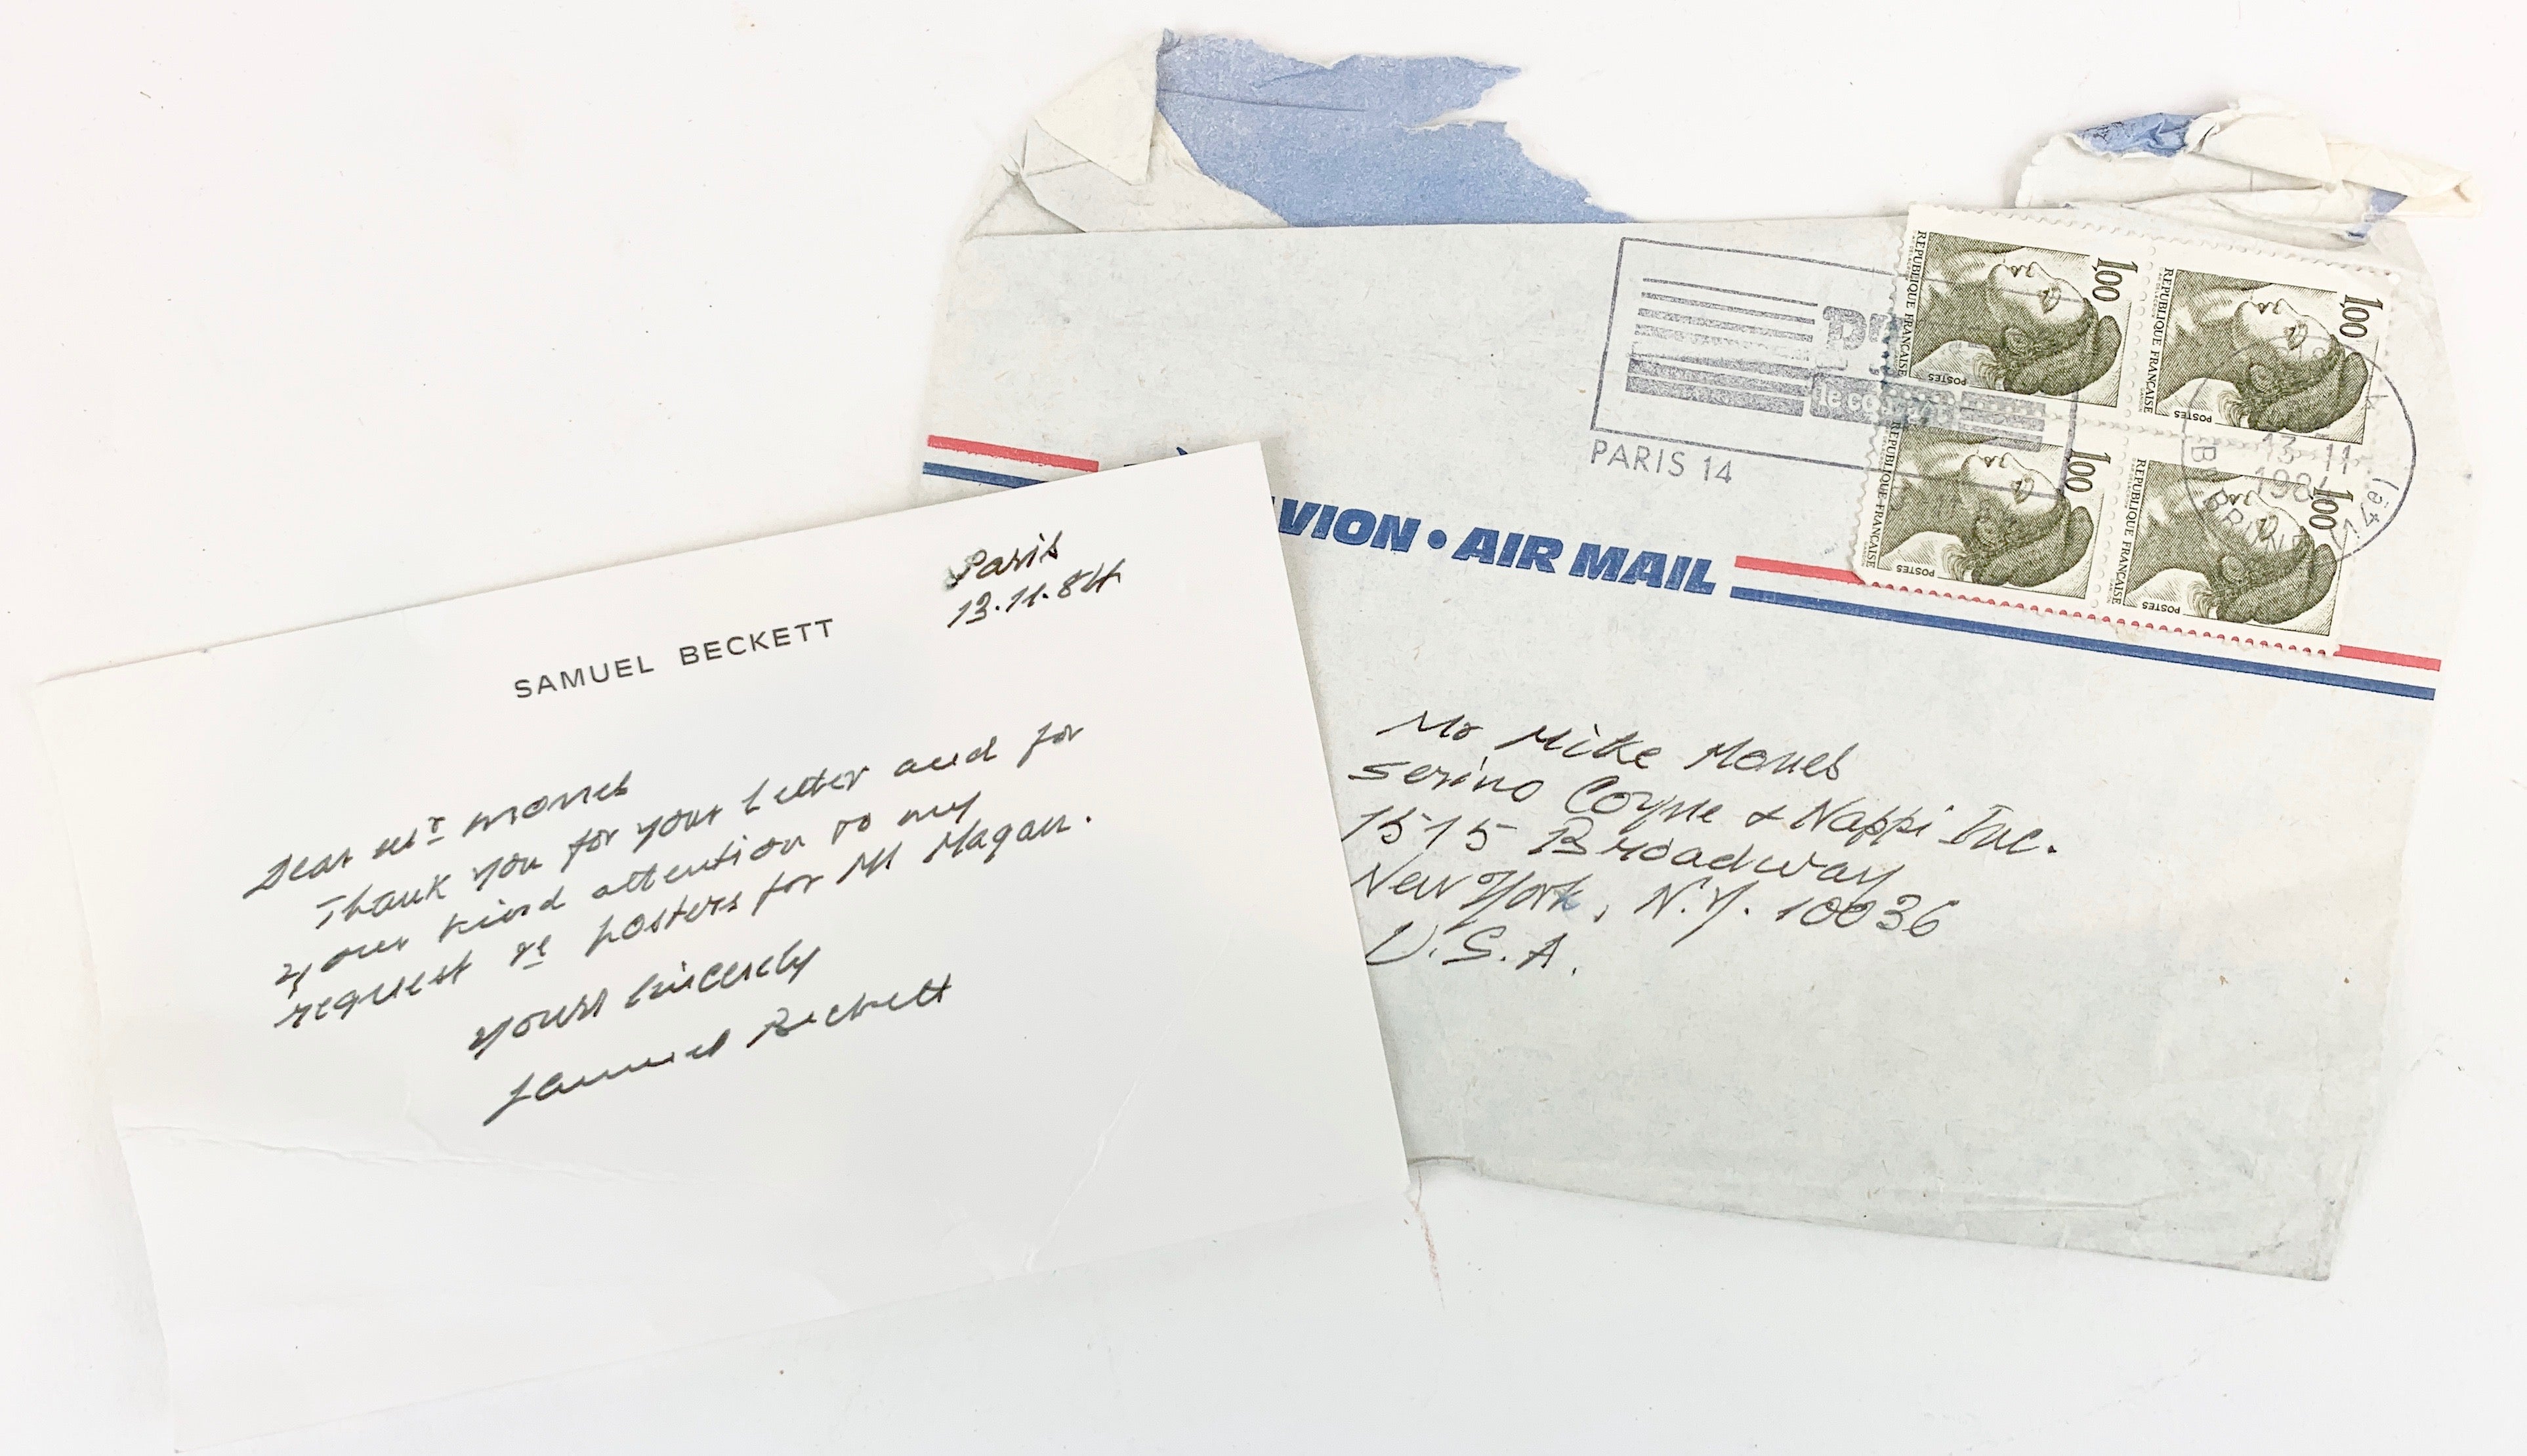 Paris
13.11.84
SAMUEL BECKETT
Dear Mr Mones
Thank you for your letter and for
your kind attention to my
request re posters for Mr Magan.
Yours sincerely
Samuel Beckett
VION • AIR MAIL
PARIS 14
13 11
1984
1,00
REPUBLIQUE FRANCAISE
POSTES
1,00
REPUBLIQUE FRANCAISE
POSTES
1,00
REPUBLIQUE FRANCAISE
POSTES
1,00
REPUBLIQUE FRANCAISE
POSTES
Mr Mike Mones
Serino Coyne & Nappi Inc.
1515 Broadway
New York, N.Y. 10036
U.S.A.